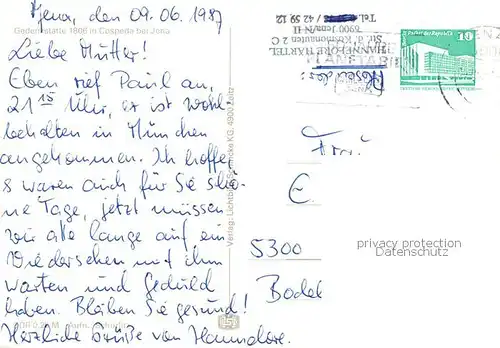 Jena, den 09.06.1987
Gedenkstätte 1806 in Cospeda bei Jena
Liebe Mutter!
Eben rief Paul an,
21 15 Uhr, er ist wohl-
behalten in München
angekommen. Ich hoffe,
s waren auch für Sie schö-
ne Tage, jetzt müssen
wir alle lange auf ein
Wiedersehen mit ihm
warten und Geduld
haben. Bleiben Sie gesund!
Herzliche Grüße von Hannelore.
Absender:
HANNELORE HÄRTEL
Str. d. Kosmonauten 2 C
6900 Jena/N II
Tel. / 42 59 12
PLANETARIUM
10
Palast der Republik
Frau
E
5300
privacy protection
Datenschutz